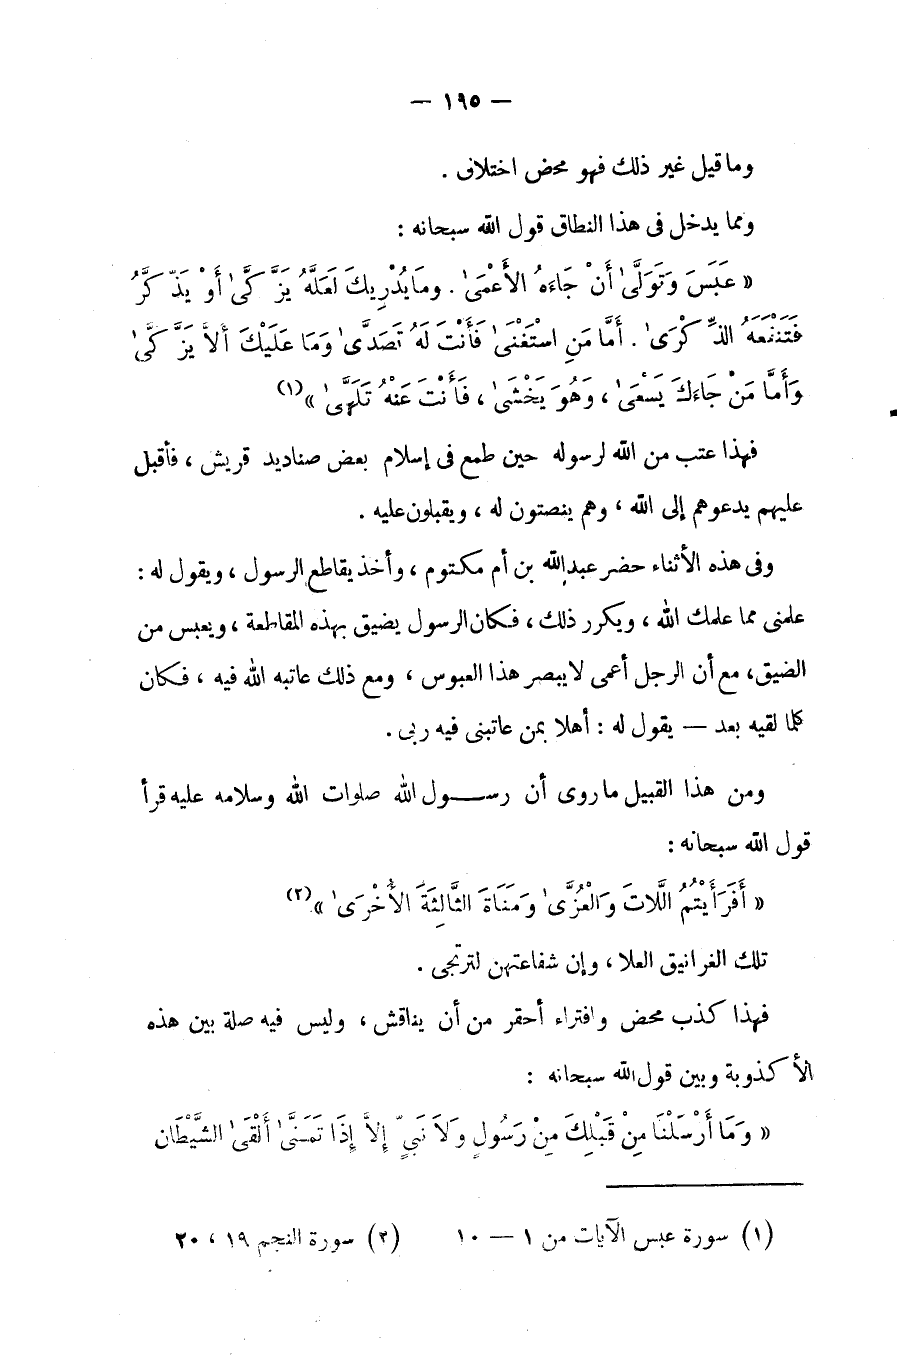 — ١٩٥ —
وما قيل غير ذلك فهو محض اختلاق .
ومما يدخل فى هذا النطاق قول الله سبحانه :
« عَبَسَ وَتَوَلَّىٰ أَنْ جَاءَهُ الأَعْمَىٰ . وما يُدْرِيكَ لَعَلَّهُ يَزَّكَّىٰ أَوْ يَذَّكَّرُ
فَتَنْفَعَهُ الذِّكْرَىٰ . أَمَّا مَنِ اسْتَغْنَىٰ فَأَنْتَ لَهُ تَصَدَّىٰ وَمَا عَلَيْكَ أَلاَّ يَزَّكَّىٰ
وَأَمَّا مَنْ جَاءَكَ يَسْعَىٰ ، وَهُوَ يَخْشَىٰ ، فَأَنْتَ عَنْهُ تَلَهَّىٰ »(١)
فهذا عتب من الله لرسوله حين طمع فى إسلام بعض صناديد قريش ، فأقبل
عليهم يدعوهم إلى الله ، وهم ينصتون له ، ويقبلون عليه .
وفى هذه الأثناء حضر عبد الله بن أم مكتوم ، وأخذ يقاطع الرسول ، ويقول له :
علمنى مما علمك الله ، ويكرر ذلك ، فكان الرسول يضيق بهذه المقاطعة ، ويعبس من
الضيق، مع أن الرجل أعمى لا يبصر هذا العبوس ، ومع ذلك عاتبه الله فيه ، فكان
كلما لقيه بعد — يقول له : أهلا بمن عاتبنى فيه ربى .
ومن هذا القبيل ما روى أن رسول الله صلوات الله وسلامه عليه قرأ
قول الله سبحانه :
« أَفَرَأَيْتُمُ اللَّاتَ وَالْعُزَّىٰ وَمَنَاةَ الثَّالِثَةَ الأُخْرَىٰ »(٢)
تلك الغرانيق العلا ، وإن شفاعتهن لترتجى .
فهذا كذب محض وافتراء أحقر من أن يناقش ، وليس فيه صلة بين هذه
الأكذوبة وبين قول الله سبحانه :
« وَمَا أَرْسَلْنَا مِنْ قَبْلِكَ مِنْ رَسُولٍ وَلاَ نَبِيٍّ إِلاَّ إِذَا تَمَنَّىٰ أَلْقَىٰ الشَّيْطَان
(١) سورة عبس الآيات من ١ — ١٠ (٢) سورة النجم ١٩ ، ٢٠